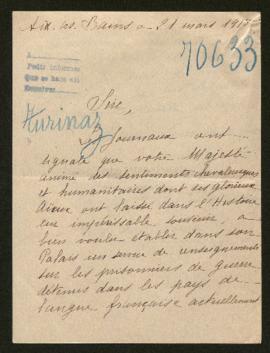 Aix les Bains 21 mars 191
70633
Pedir informes
Que se hace así
Kurinaz
Sire,
Les Journaux ont
signalé que votre Majesté
animé des sentiments chevaleresques
et humanitaires dont ses glorieux
Aïeux ont laissé dans l'Histoire
un impérissable souvenir a
bien voulu établir dans son
Palais un service de renseignements
sur les prisonniers de guerre
détenus dans les pays de
langue française actuellement